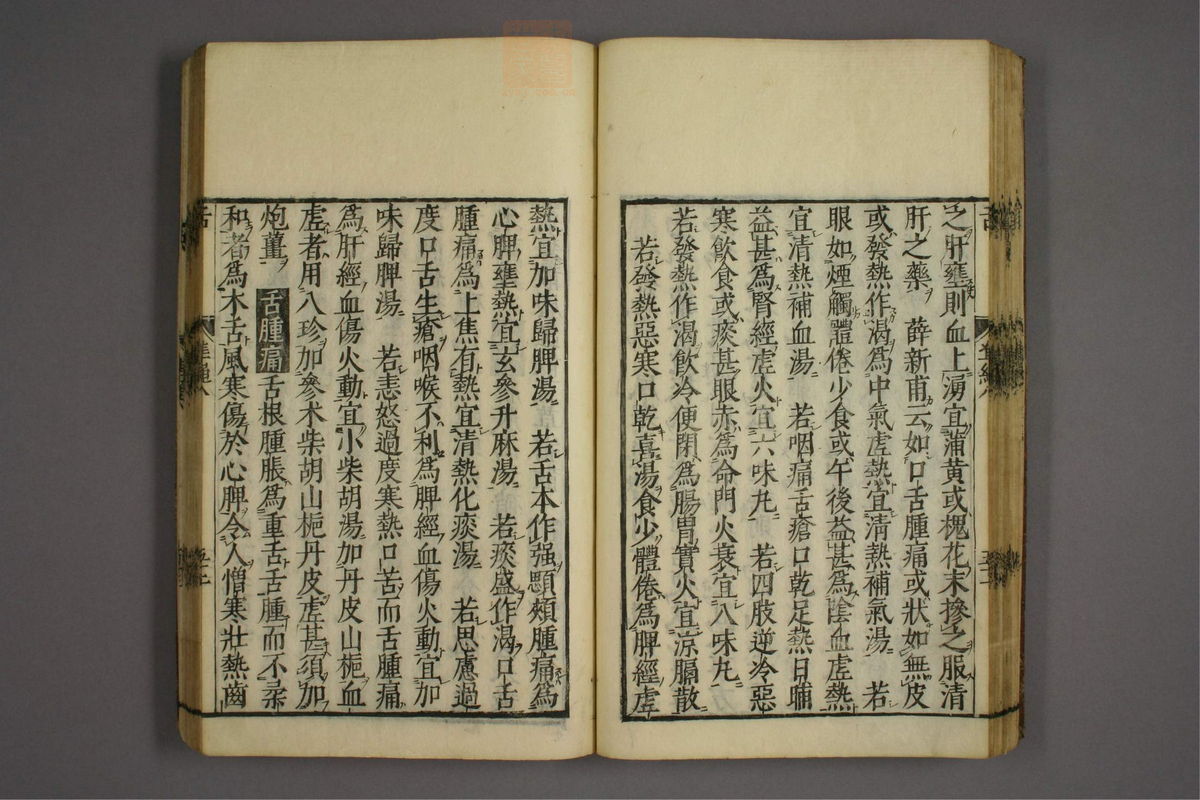 之肝壅則血上湧宜蒲黃或槐花末摻之服清
肝之藥　薛新甫云如口舌腫痛或狀如無皮
或發熱作渴為中氣虛熱宜清熱補氣湯　若
眼如煙觸體倦少食或午後益甚為陰血虛熱
宜清熱補血湯　若咽痛舌瘡口乾足熱日晡
益甚為腎經虛火宜六味丸　若四肢逆冷惡
寒飲食或痰甚眼赤為命門火衰宜八味丸
若發熱作渴飲冷便閉為腸胃實火宜涼膈散
若發熱惡寒口乾喜湯食少體倦為脾經虛
熱宜加味歸脾湯　若舌本作强顋頰腫痛為
心脾壅熱宜玄參升麻湯　若痰盛作渴口舌
腫痛為上焦有熱宜清熱化痰湯　若思慮過
度口舌生瘡咽喉不利為脾經血傷火動宜加
味歸脾湯　若恚怒過度寒熱口苦而舌腫痛
為肝經血傷火動宜小柴胡湯加丹皮山梔血
虛者用八珍加參术柴胡山梔丹皮虛甚須加
炮薑　舌腫痛　舌根腫脹為重舌舌腫而不柔
和者為木舌風寒傷於心脾令人憎寒壯熱齒